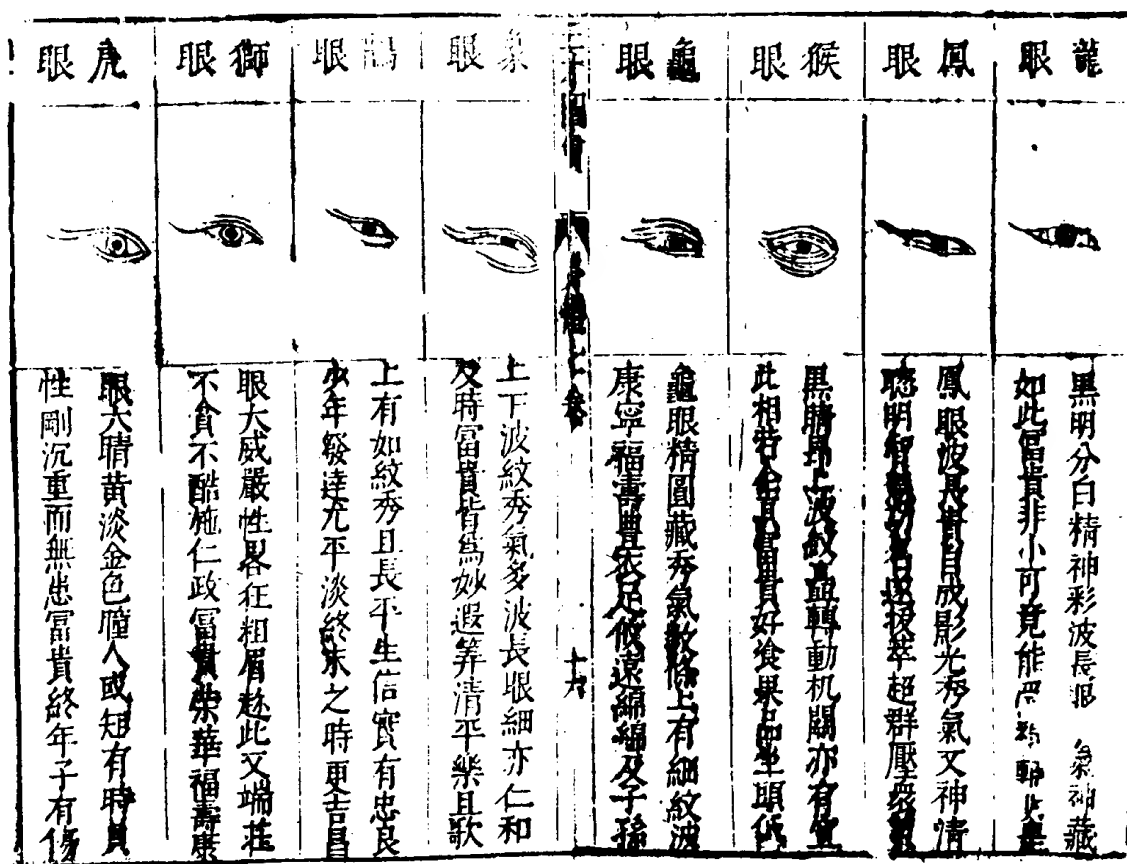 龍眼
黑明分白精神彩波長眼 氣神藏
如此富貴非小可竟能 輔 
鳳眼
鳳眼波長貴自成影光秀氣又神清
聰明智慧功名遂拔萃超群壓衆
猴眼
黑睛昂上波紋 轉動机關亦有宜
此相若全真富貴好食果品坐頭低
龜眼
龜眼精圓藏秀氣數條上有細紋波
康寧福壽豊衣足攸遠綿綿及子孫
三才圖會
身體七卷
十六
象眼
上下波紋秀氣多波長眼細亦仁和
及時富貴皆爲妙遐筭清平樂且歌
鵲眼
上有如紋秀且長平生信實有忠良
少年發達尢平淡終末之時更吉昌
獅眼
眼大威嚴性畧狂粗眉趂此又端莊
不貪不酷施仁政富貴榮華福壽康
虎眼
眼大睛黃淡金色瞳人或短有時員
性剛沉重而無患富貴終年子有傷